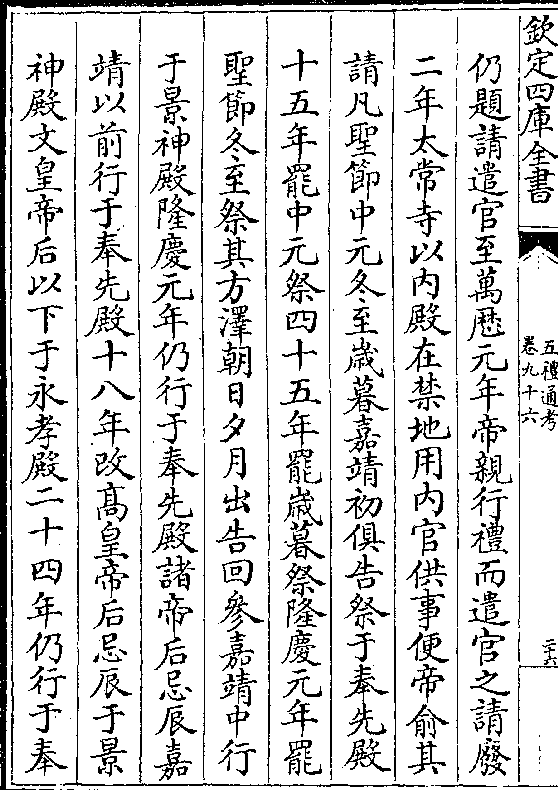 欽定四庫全書
五禮通考
卷九十六
二十六
仍題請遣官至萬厯元年帝親行禮而遣官之請廢
二年太常寺以内殿在禁地用内官供事便帝俞其
請凡聖節中元冬至歳暮嘉靖初俱告祭于奉先殿
十五年罷中元祭四十五年罷歳暮祭隆慶元年罷
聖節冬至祭其方澤朝日夕月出告回參嘉靖中行
于景神殿隆慶元年仍行于奉先殿諸帝后忌辰嘉
靖以前行于奉先殿十八年改髙皇帝后忌辰于景
神殿文皇帝后以下于永孝殿二十四年仍行于奉